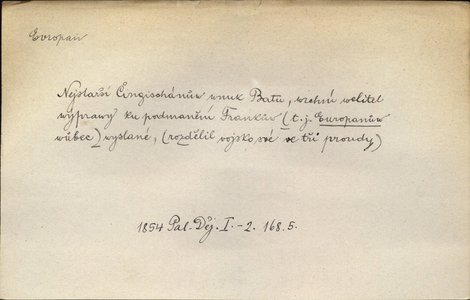 Evropan
Nejstarší Čingischánůw wnuk Batu, wrchní welitel
wýprawy ku podmanění Frankůw (t. j. Europanůw
wůbec) wyslané, (rozdělil wojsko své ve tři proudy)
1854 Pal. Děj. I.-2. 168.5.